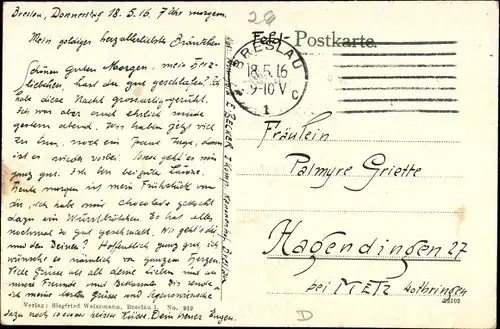 Breslau, Donnerstag 18.5.16, 7 Uhr morgens.
Mein goldiges herzallerliebstes Bräutchen
Schönen Guten Morgen, mein Herz-
liebchen, hast du gut geschlafen? Ich
habe diese Nacht grossartig geruht.
Ich war aber auch ehrlich müde
gestern abend. Wir haben jetzt viel
zu tun, noch ein Paar Tage, dann
ist es wieder vorbei. Sonst geht es mir
ganz gut. Ich bin bei guter Laune.
Heute morgen ist mein Frühstück von
dir, ich habe mir Chocolade gekocht
dazu ein Wurstbrötchen. Es hat alles
nochmal so gut geschmeckt. Wie geht's dir
und den Deinen? Hoffentlich ganz gut, ich
wünsche es nämlich von ganzem Herzen.
Viele Grüsse an all deine Lieben und an
meine Freunde und Bekannte. Dir sende
ich meine besten Grüsse und
dazu noch heisse Küsse. Dein treuer Eugen.
Verlag: Siegfried Weizsmann, Breslau I. No. 919
E. BECKER I Komp. BRESLAU
26
Feld-Postkarte.
BRESLAU
18.5.16
9-10 V
c
1
Fräulein
Palmyre Griette
Hagendingen 27
bei METZ Lothringen
D